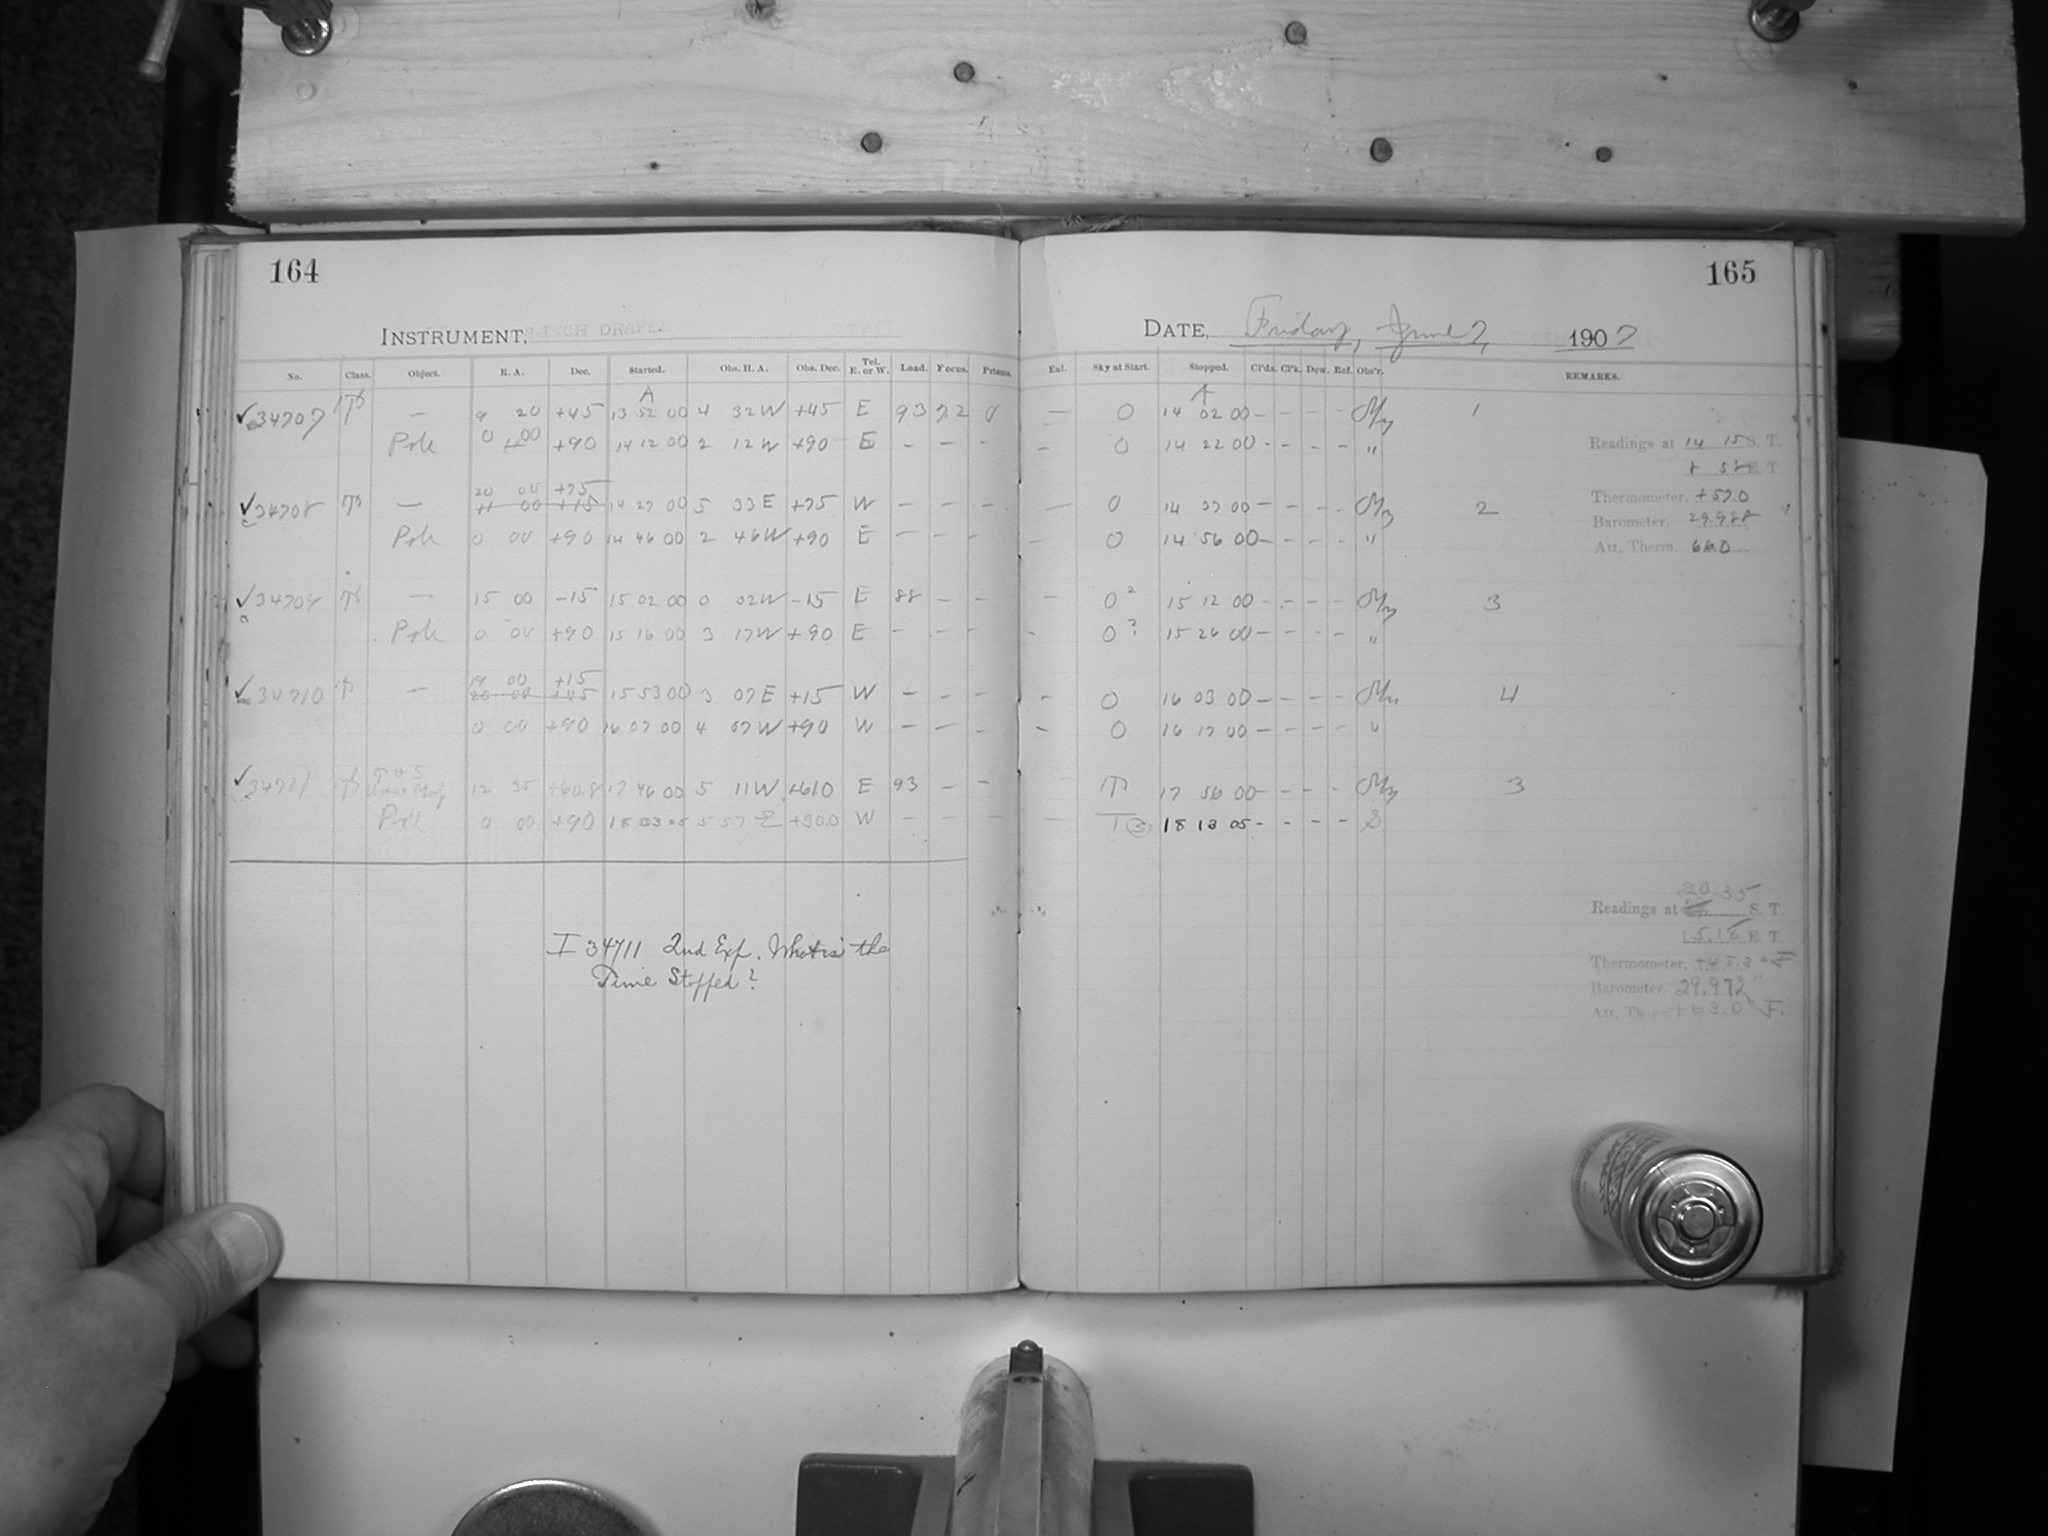 164
165
INSTRUMENT, 8-INCH DRAPER
DATE, Friday, June 7, 1907
No. Class. Object. R. A. Dec. Started. Obs. H. A. Obs. Dec. Tel. E. or W. Load. Focus. Prisms. Eal. Sky at Start. Stopped. Cl'ds. Cl'k. Dew. Ref. Obs'r. REMARKS.
A A
✓34707 — 9 20 +45 13 52 00 4 32 W +45 E 93 72 0 — 0 14 02 00 – – – – 1
Pole 0 00 +90 14 12 00 2 12 W +90 E – – – – 0 14 22 00 – – – – "
Readings at 14 15 S. T.
E. T.
20 00 +75
✓34708 — 14 27 00 5 33 E +75 W – – – — 0 14 37 00 – – – – 2
Thermometer. +57.0
Barometer. 29.988
Pole 0 00 +90 14 46 00 2 46 W +90 E – – – – 0 14 56 00 – – – – "
Att. Therm. 66.0
✓34709 — 15 00 –15 15 02 00 0 02 W –15 E 88 – – – 0 15 12 00 – – – – 3
Pole 0 00 +90 15 16 00 3 17 W +90 E – – – – 0? 15 26 00 – – – – "
19 00 +15
✓34710 — 20 00 +45 15 53 00 3 07 E +15 W – – – – 0 16 03 00 – – – – 4
0 00 +90 16 07 00 4 07 W +90 W – – – – 0 16 17 00 – – – – "
✓34711 12 35 +60.8 17 46 00 5 11 W +61.0 E 93 – – 17 56 00 – – – – 3
Pole 0 00 +90 18 03 05 5 57 E +90.0 W – – – — 18 13 05 – – – – S
20.35
Readings at S. T.
15.18 E. T.
I 34711 2nd Exp. What is the
Time Stopped?
Thermometer.
Barometer. 29.972
Att. Therm. +63.0 F.